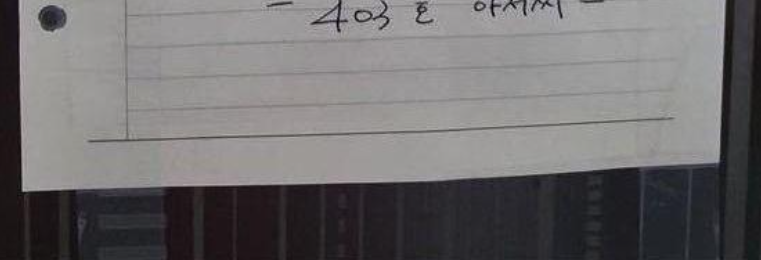 - 403호 아저씨 -